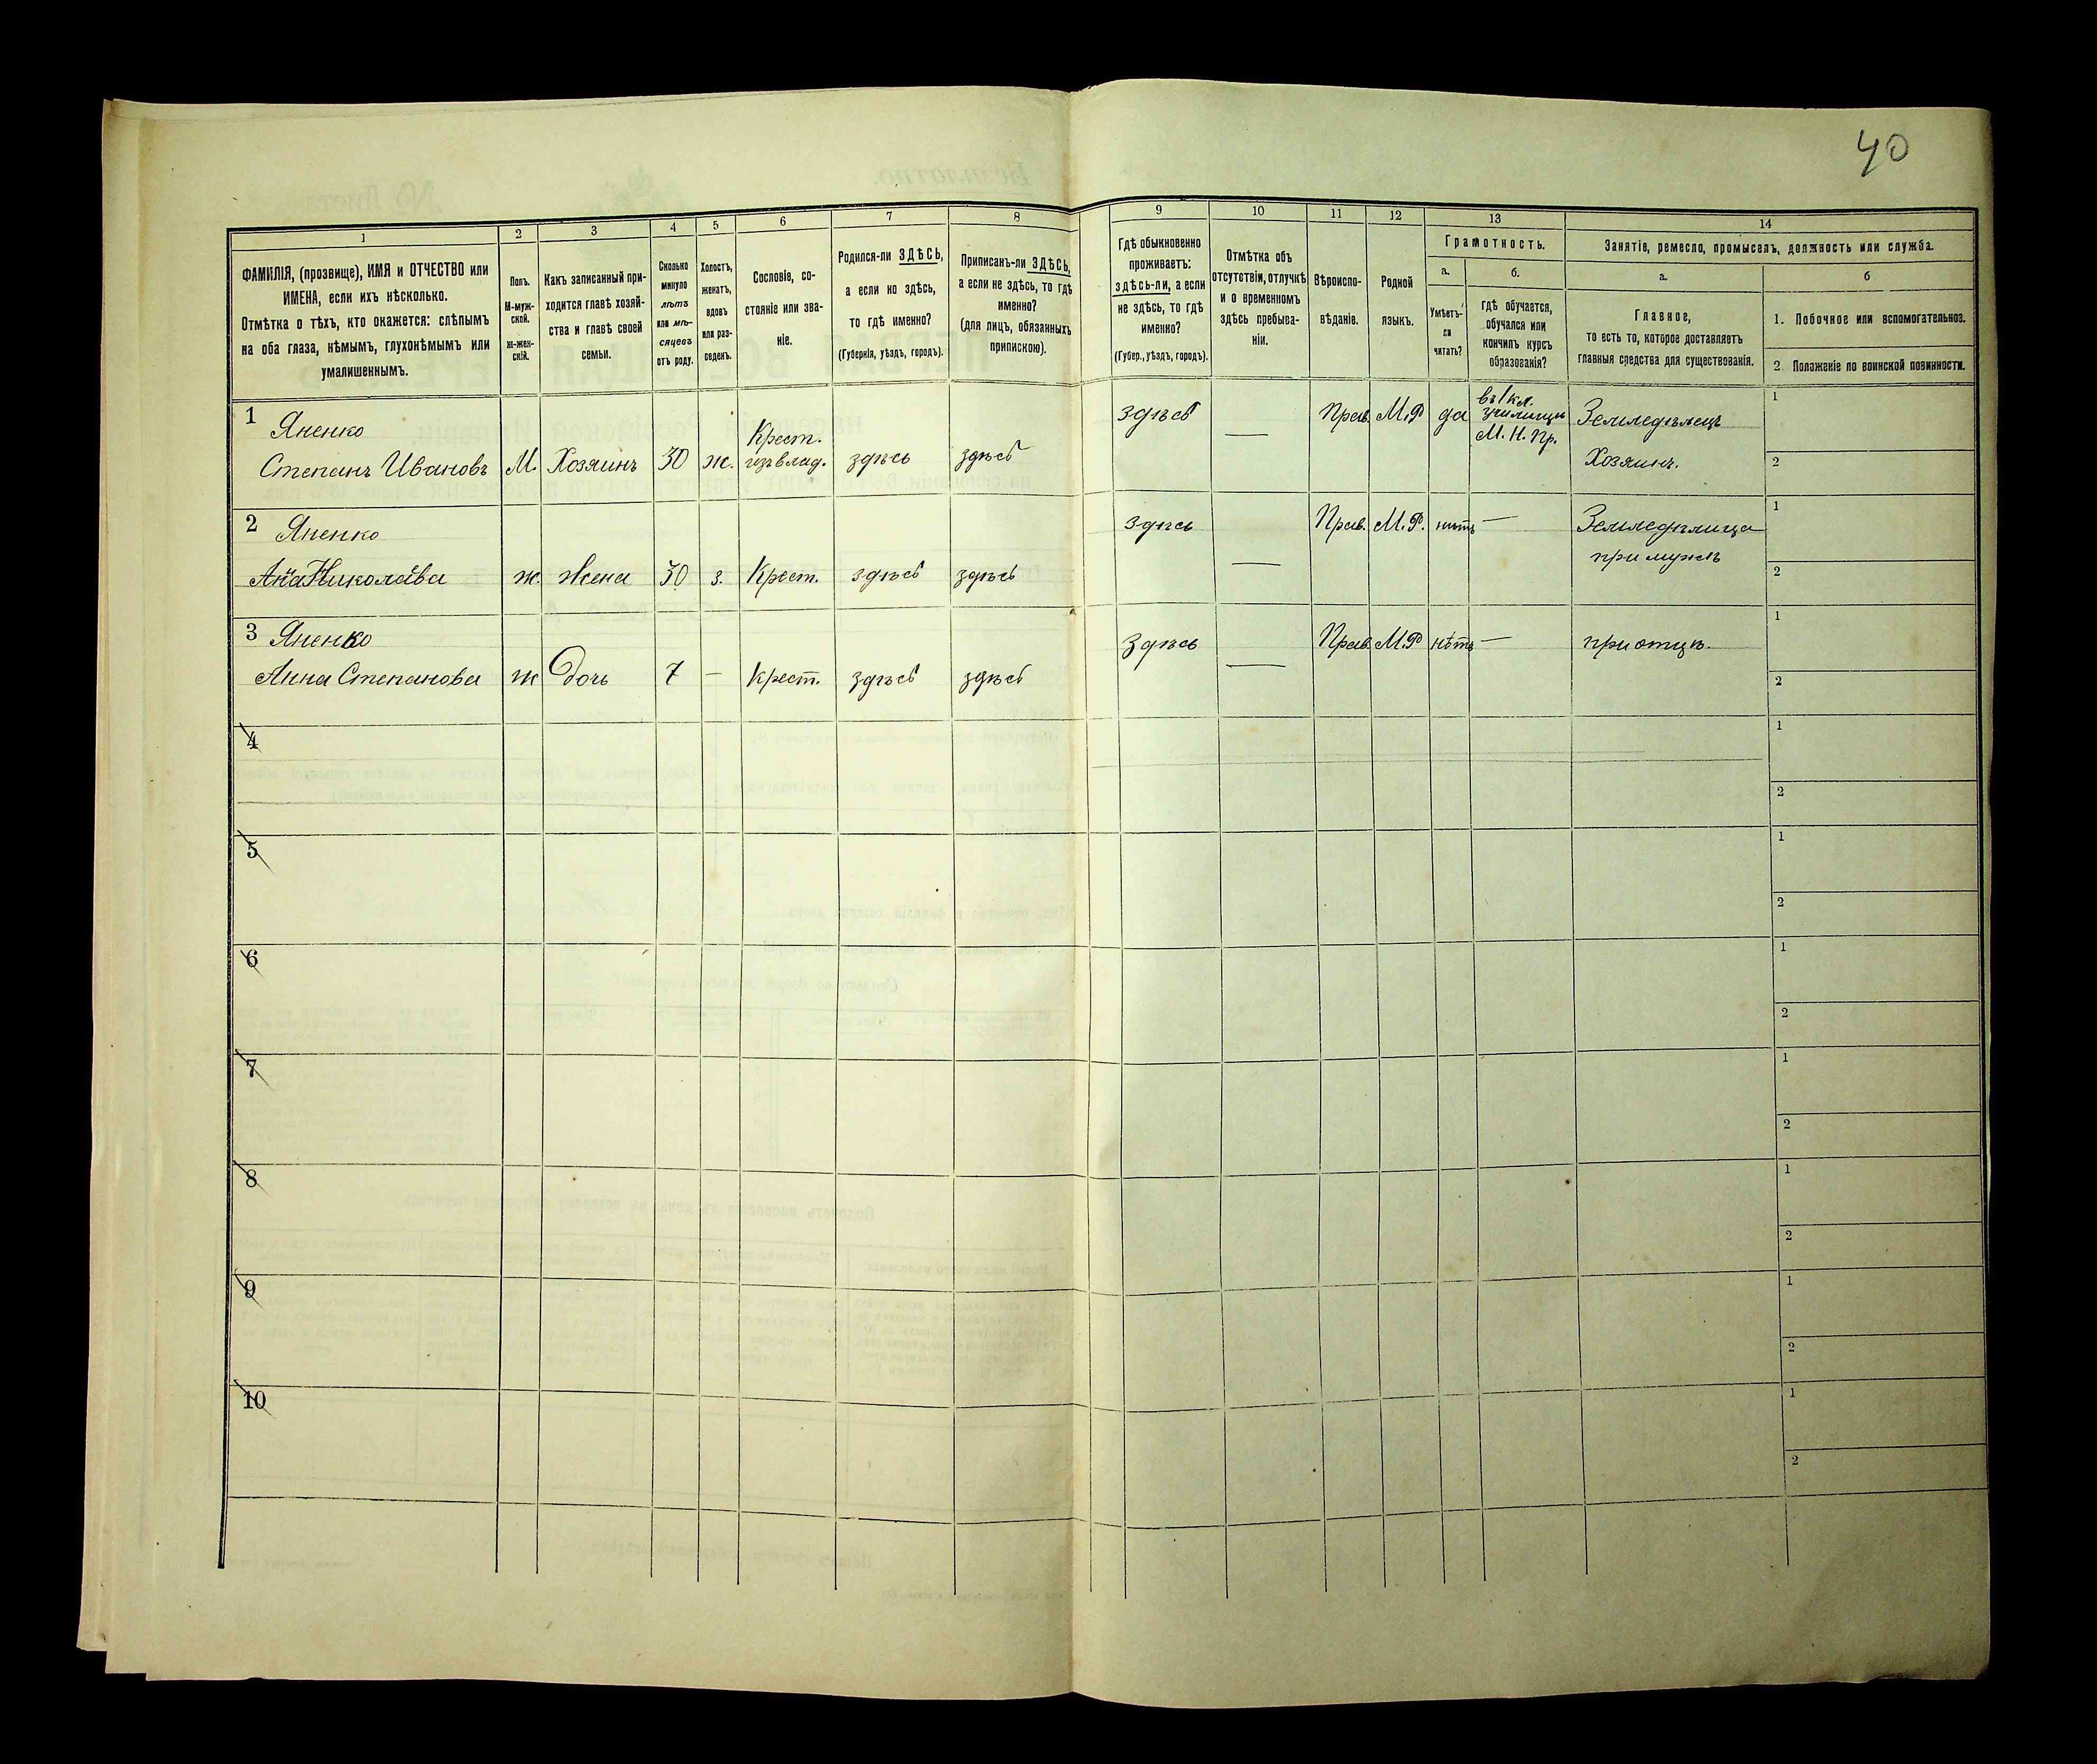 40
1
2
3
4
5
6
7
8
9
10
11
12
13
14
ФАМИЛІЯ, (прозвище), ИМЯ и ОТЧЕСТВО или
ИМЕНА, если ихъ нѣсколько.
Отмѣтка о тѣхъ, кто окажется: слѣпымъ
на оба глаза, нѣмымъ, глухонѣмымъ или
умалишеннымъ.
Полъ.
М-муж-
ской.
Ж-жен-
скій.
Какъ записанный при-
ходится главѣ хозяй-
ства и главѣ своей
семьи.
Сколько
минуло
лѣтъ
или мѣ-
сяцевъ
отъ роду.
Холостъ,
женатъ,
вдовъ
или раз-
веденъ.
Сословіе, со-
стояніе или зва-
ніе.
Родился-ли ЗДѢСЬ,
а если не здѣсь,
то гдѣ именно?
(Губернія, уѣздъ, городъ).
Приписанъ-ли ЗДѢСЬ,
а если не здѣсь, то гдѣ
именно?
(для лицъ, обязанныхъ
припискою).
Гдѣ обыкновенно
проживаетъ:
здѣсь-ли, а если
не здѣсь, то гдѣ
именно?
(Губер., уѣздъ, городъ).
Отмѣтка объ
отсутствіи, отлучкѣ
и о временномъ
здѣсь пребыва-
ніи.
Вѣроиспо-
вѣданіе.
Родной
языкъ.
Грамотность.
а.
Умѣетъ-
ли
читать?
б.
гдѣ обучается,
обучался или
кончилъ курсъ
образованія?
Занятіе, ремесло, промыселъ, должность или служба.
а.
Главное,
то есть то, которое доставляетъ
главныя средства для существованія.
б
1. Побочное или вспомогательное.
2. Положеніе по воинской повинности.
1 Яненко
Степанъ Ивановъ М. Хозяинъ 30 ж. Крест.
изъ влад. здѣсь здѣсь
здѣсь — Прав. М.Р да въ 1 кл.
училищѣ
М. Н. Пр.
Земледѣлецъ
Хозяинъ.
1
2
2 Яненко
Анна Николаева ж. жена 30 з. Крест. здѣсь здѣсь
здѣсь — Прав. М.Р. нѣтъ —
Земледѣлица
при мужѣ
1
2
3 Яненко
Анна Степанова ж Дочь 7 — Крест. здѣсь здѣсь
здѣсь — Прав. М.Р нѣтъ — при отцѣ.
1
2
4
1
2
5
1
2
6
1
2
7
1
2
8
1
2
9
1
2
10
1
2